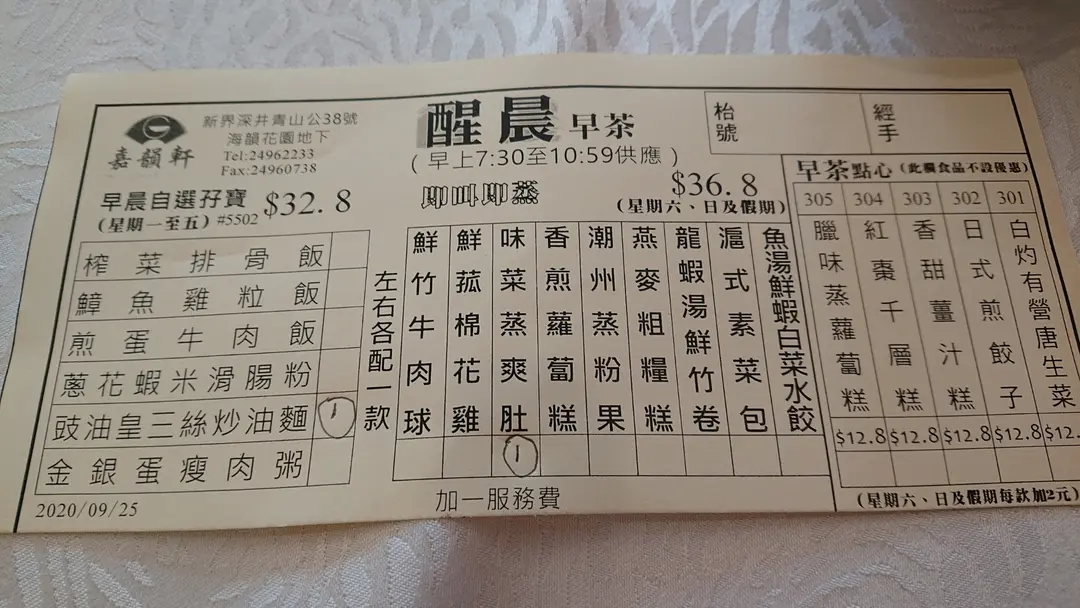 嘉韻軒
新界深井青山公38號
海韻花園地下
Tel:24962233
Fax:24960738
醒晨早茶
(早上7:30至10:59供應)
枱號
經手
早晨自選孖寶 $32.8
(星期一至五) #5502
即叫即蒸
$36.8
(星期六、日及假期)
榨菜排骨飯
鱆魚雞粒飯
煎蛋牛肉飯
蔥花蝦米滑腸粉
豉油皇三絲炒油麵 1
金銀蛋瘦肉粥
左右各配一款
鮮竹牛肉球
鮮菰棉花雞
味菜蒸爽肚 1
香煎蘿蔔糕
潮州蒸粉果
燕麥粗糧糕
龍蝦湯鮮竹卷
滬式素菜包
魚湯鮮蝦白菜水餃
早茶點心 (此欄食品不設優惠)
305 臘味蒸蘿蔔糕 $12.8
304 紅棗千層糕 $12.8
303 香甜薑汁糕 $12.8
302 日式煎餃子 $12.8
301 白灼有營唐生菜 $12.
(星期六、日及假期每款加2元)
加一服務費
2020/09/25